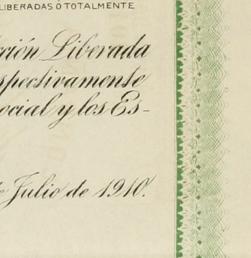 LIBERADAS Ó TOTALMENTE
ción Liberada
spectivamente
ocial y los Es-
Julio de 1910.